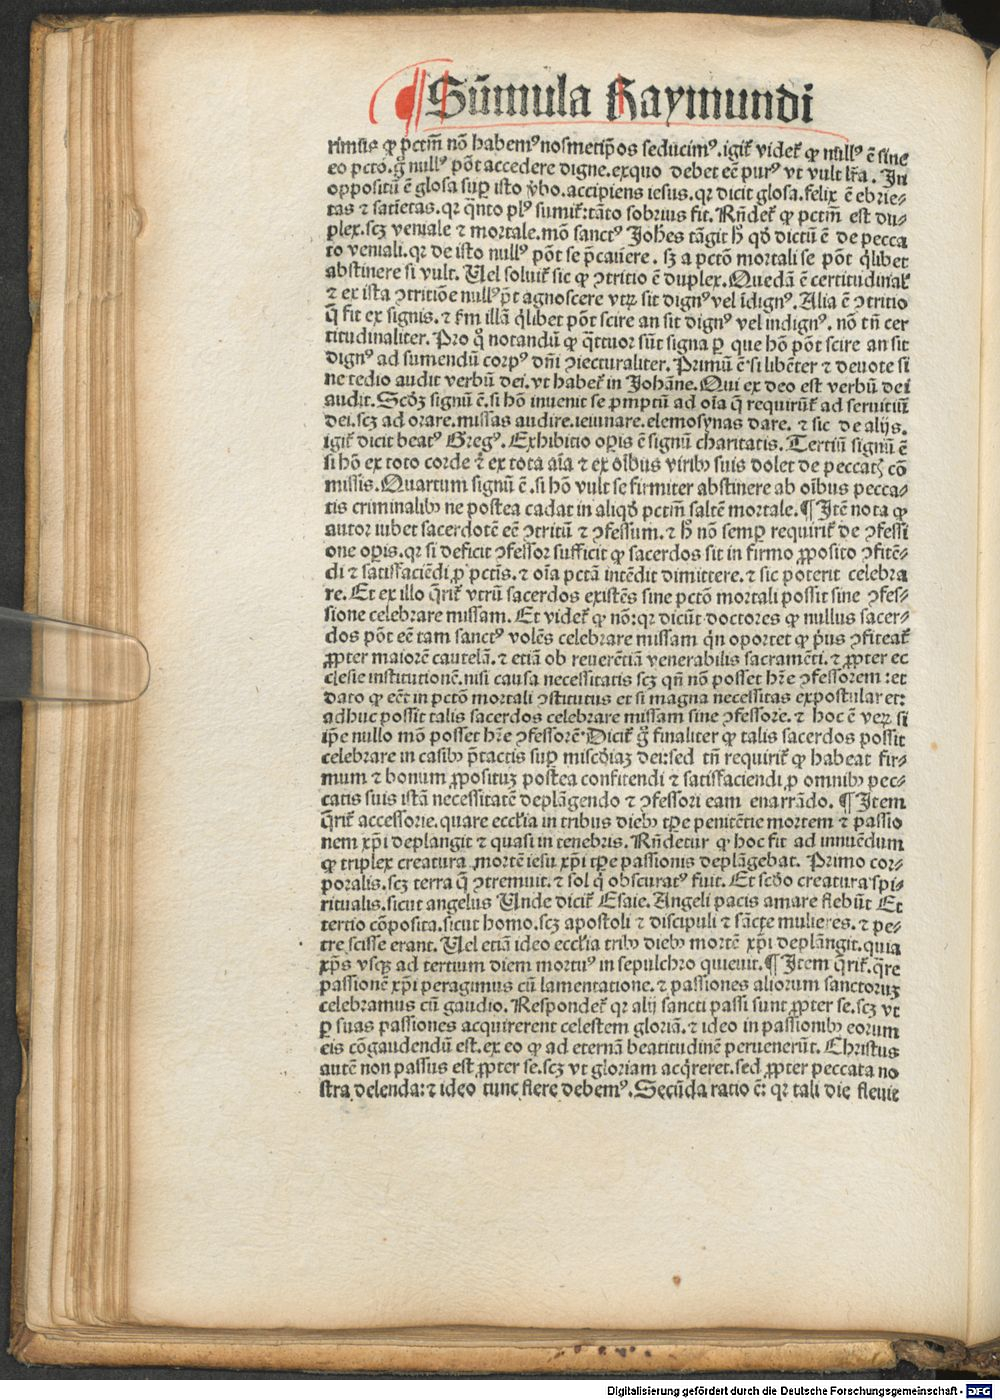 Sūmula Raymundi
rimus ꝙ pctm̄ nō habemꝰ nosmetip̄os seducimꝰ. igit᷑ videt᷑ ꝙ nullꝰ ē sine
eo pctō. g̊ nullꝰ pōt accedere digne. exquo debet eē purꝰ vt vult lr̄a. In
oppositū ē glosa suꝑ isto v̄bo. accipiens iesus. qr dicit glosa. felix ē ebrie⸗
tas ⁊ satietas. qr q̄nto plꝰ sumit᷑: tāto sobrius fit. Rn̄det᷑ ꝙ pctm̄ est du⸗
plex. scꝫ veniale ⁊ mortale. mō sanctꝰ Joh̄es tāgit h̄ qd̄ dictū ē de pecca
to veniali. qr de isto nullꝰ pōt se p̄cauere. sꝫ a pctō mortali se pōt q̄libet
abstinere si vult. Uel soluit᷑ sic ꝙ ꝯtritio ē duplex. Quedā ē certitudinalꝭ
⁊ ex ista ꝯtritiōe nullꝰ pt̄ agnoscere vtꝝ sit dignꝰ vel īdignꝰ. Alia ē ꝯtritio
q̄ fit ex signis. ⁊ ẜm illā q̄libet pōt scire an sit dignꝰ vel indignꝰ. nō tn̄ cer
titudinaliter. Pro q̊ notandū ꝙ q̄ttuor sūt signa ꝑ que hō pōt scire an sit
dignꝰ ad sumendū corpꝰ dn̄i ꝯiecturaliter. Primū ē si libēter ⁊ deuote si
ne tedio audit verbū dei. vt habet᷑ in Johāne. Qui ex deo est verbū dei
audit. Scd̄ꝫ signū ē. si hō inuenit se ꝓmptū ad oīa q̄ requirūt᷑ ad seruitiū
dei. scꝫ ad orare. missas audire. ieiunare. elemosynas dare. ⁊ sic de alijs.
igit᷑ dicit beatꝰ Gregꝰ. Exhibitio oꝑis ē signū charitatis. Tertiū signū ē
si hō ex toto corde ⁊ ex tota aīa ⁊ ex oībus viribꝫ suis dolet de peccatꝭ cō
missis. Quartum signū ē. si hō vult se firmiter abstinere ab oībus pecca⸗
tis criminalibꝫ ne postea cadat in aliqd̄ pctm̄ saltē mortale. ¶ Itē nota ꝙ
autor iubet sacerdotē eē ꝯtritū ⁊ ꝯfessum. ⁊ h̄ nō semꝑ requirit᷑ de ꝯfessi
one oꝑis. qr si deficit ꝯfessor sufficit ꝙ sacerdos sit in firmo ꝓposito ꝯfitē⸗
di ⁊ satisfaciēdi ꝓ pctīs. ⁊ oīa pctā intēdit dimittere. ⁊ sic poterit celebra
re. Et ex illo q̄rit᷑ vtrū sacerdos existēs sine pctō mortali possit sine ꝯfes⸗
sione celebrare missam. Et videt᷑ ꝙ nō: qr dicūt doctores ꝙ nullus sacer⸗
dos pōt eē tam sanctꝰ volēs celebrare missam qn̄ oportet ꝙ p̄us ꝯfiteat᷑
ꝓpter maiorē cautelā. ⁊ etiā ob reuerētiā venerabilis sacramēti. ⁊ ꝓpter ec
clesie institutionē. nisi causa necessitatis scꝫ qn̄ non posset hr̄e ꝯfessorem: et
dato ꝙ eēt in pctō mortali ꝯstitutus et si magna necessitas expostularet:
adhuc possit talis sacerdos celebrare missam sine ꝯfessore. ⁊ hoc ē veꝝ si
ip̄e nullo mō posset hr̄e ꝯfessorē. Dicit᷑ g̊ finaliter ꝙ talis sacerdos possit
celebrare in casibꝫ p̄tactis suꝑ miscd̄iaꝫ dei: sed tn̄ requirit᷑ ꝙ habeat fir⸗
mum ⁊ bonum ꝓpositum postea confitendi ⁊ satisfaciendi ꝓ omnibꝫ pec⸗
catis suis istā necessitatē deplāgendo ⁊ ꝯfessori eam enarrādo. ¶ Item
q̄rit᷑ accessorie. quare ecclīa in tribus diebꝫ tꝑe penitētie mortem ⁊ passio
nem xp̄i deplangit ⁊ quasi in tenebris. Rn̄detur ꝙ hoc fit ad innuēdum
ꝙ triplex creatura mortē iesu xp̄i tꝑe passionis deplāgebat. Primo cor⸗
poralis. scꝫ terra q̄ ꝯtremuit. ⁊ sol q̄ obscuratꝰ fuit. Et scd̄o creatura spi⸗
ritualis. sicut angelus Unde dicit᷑ Esaie. Angeli pacis amare flebūt Et
tertio cōposita. sicut homo. scꝫ apostoli ⁊ discipuli ⁊ sācte mulieres. ⁊ pe⸗
tre scisse erant. Uel etiā ideo ecclīa tribꝫ diebꝫ mortē xp̄i deplāngit. quia
xp̄s vsqꝫ ad tertium diem mortuꝰ in sepulchro quieuit. ¶ Item q̄rit᷑. q̄re
passionē xp̄i peragimus cū lamentatione. ⁊ passiones aliorum sanctoruꝫ
celebramus cū gaudio. Respondet᷑ qr alij sancti passi sunt ꝓpter se. scꝫ vt
ꝑ suas passiones acquirerent celestem gloriā. ⁊ ideo in passionibꝫ eorum
eis cōgaudendū est. ex eo ꝙ ad eternā beatitudinē peruenerūt. Christus
autē non passus est ꝓpter se. scꝫ vt gloriam acq̄reret. sed ꝓpter peccata no
stra delenda: ⁊ ideo tunc flere debemꝰ. Secūda ratio ē: qr tali die fleuit
Digitalisierung gefördert durch die Deutsche Forschungsgemeinschaft - DFG